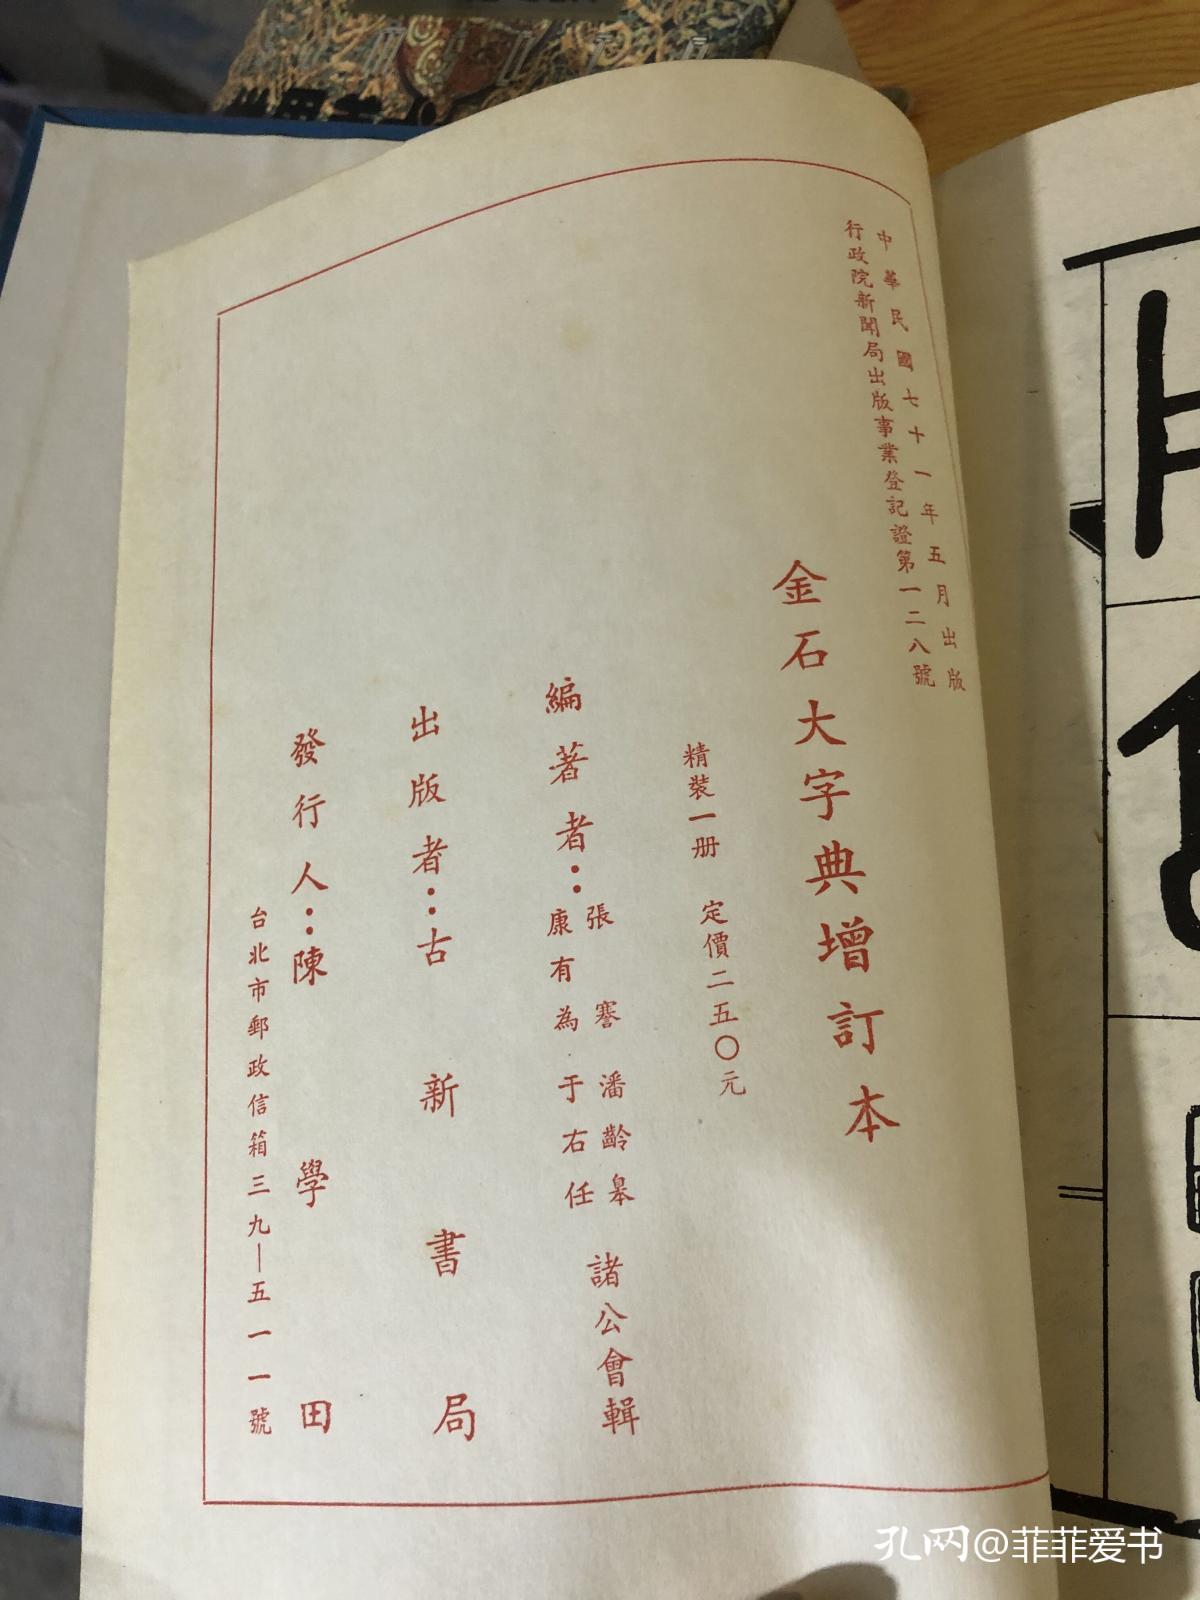 中華民國七十一年五月出版
行政院新聞局出版事業登記證第一二八號
金石大字典增訂本
精裝一册 定價二五〇元
編著者：
張謇 潘齡皋
康有為 于右任
諸公會輯
出版者：古新書局
發行人：陳學田
台北市郵政信箱三九—五一一號
孔网@菲菲爱书